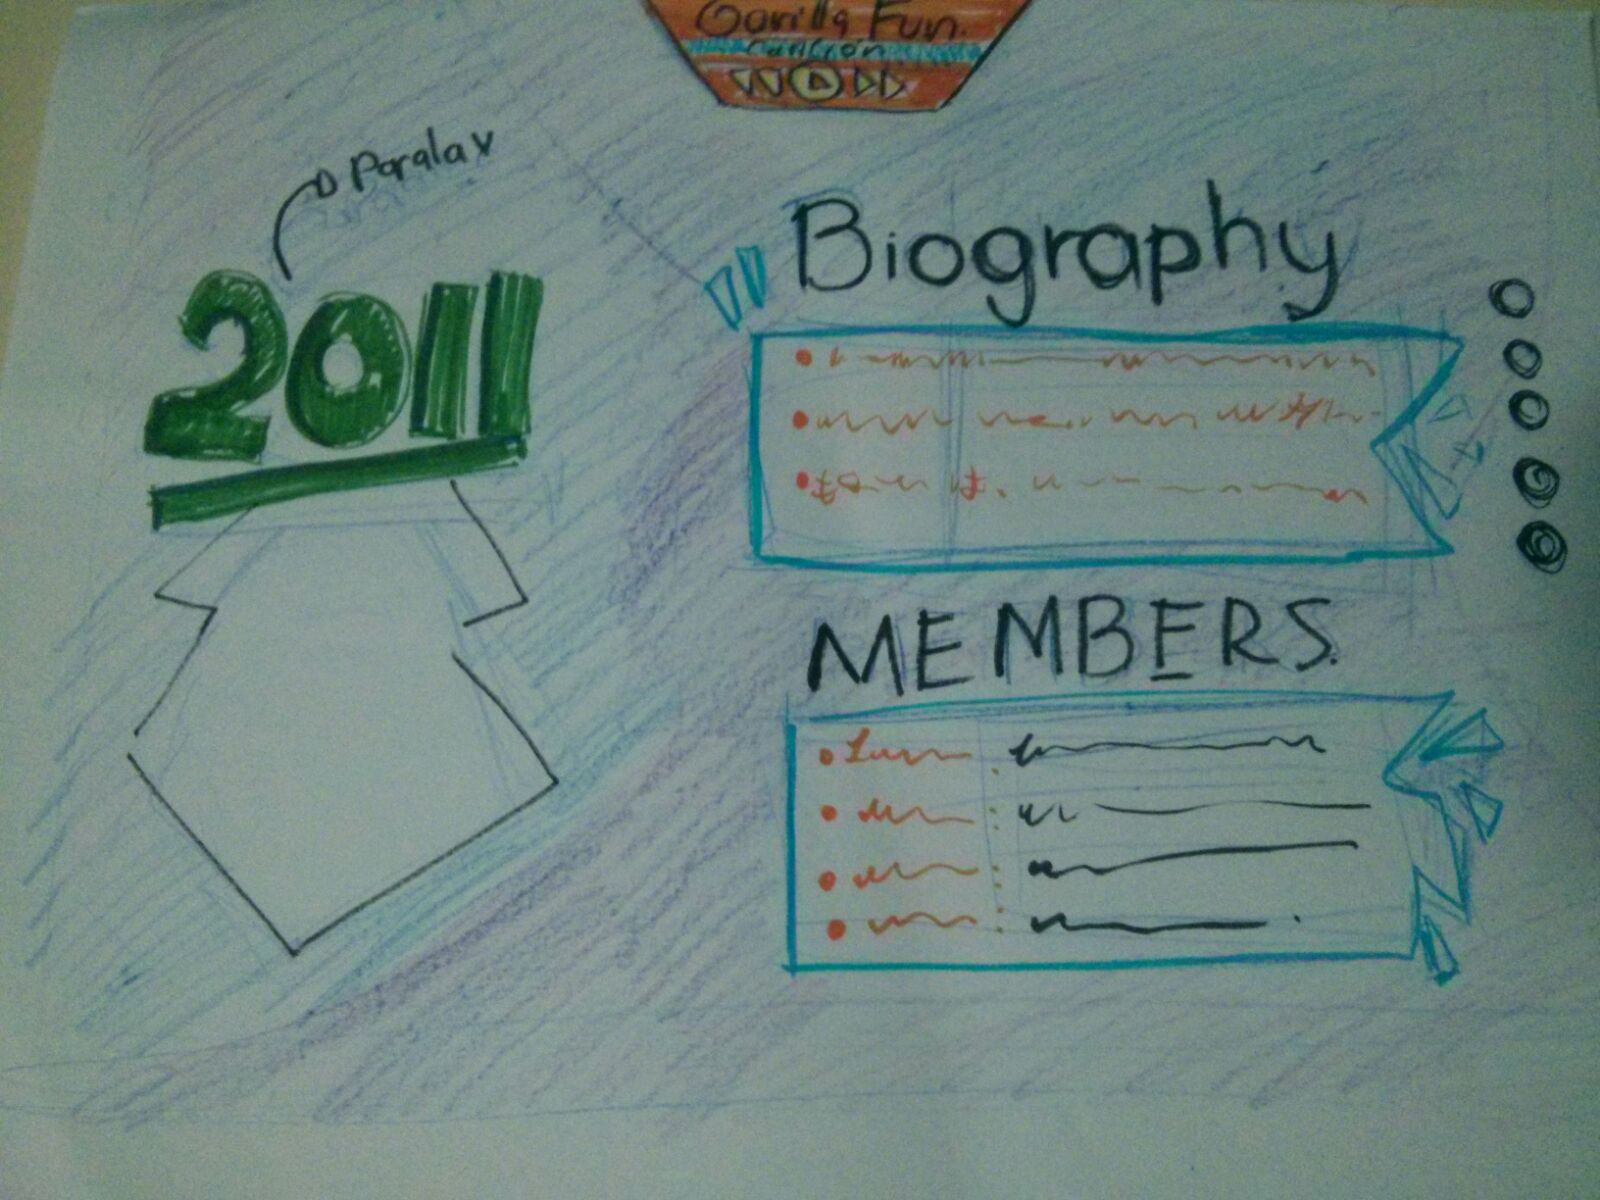 Gorilla Fun.
Canción
Paralax
2011
Biography
MEMBERS.